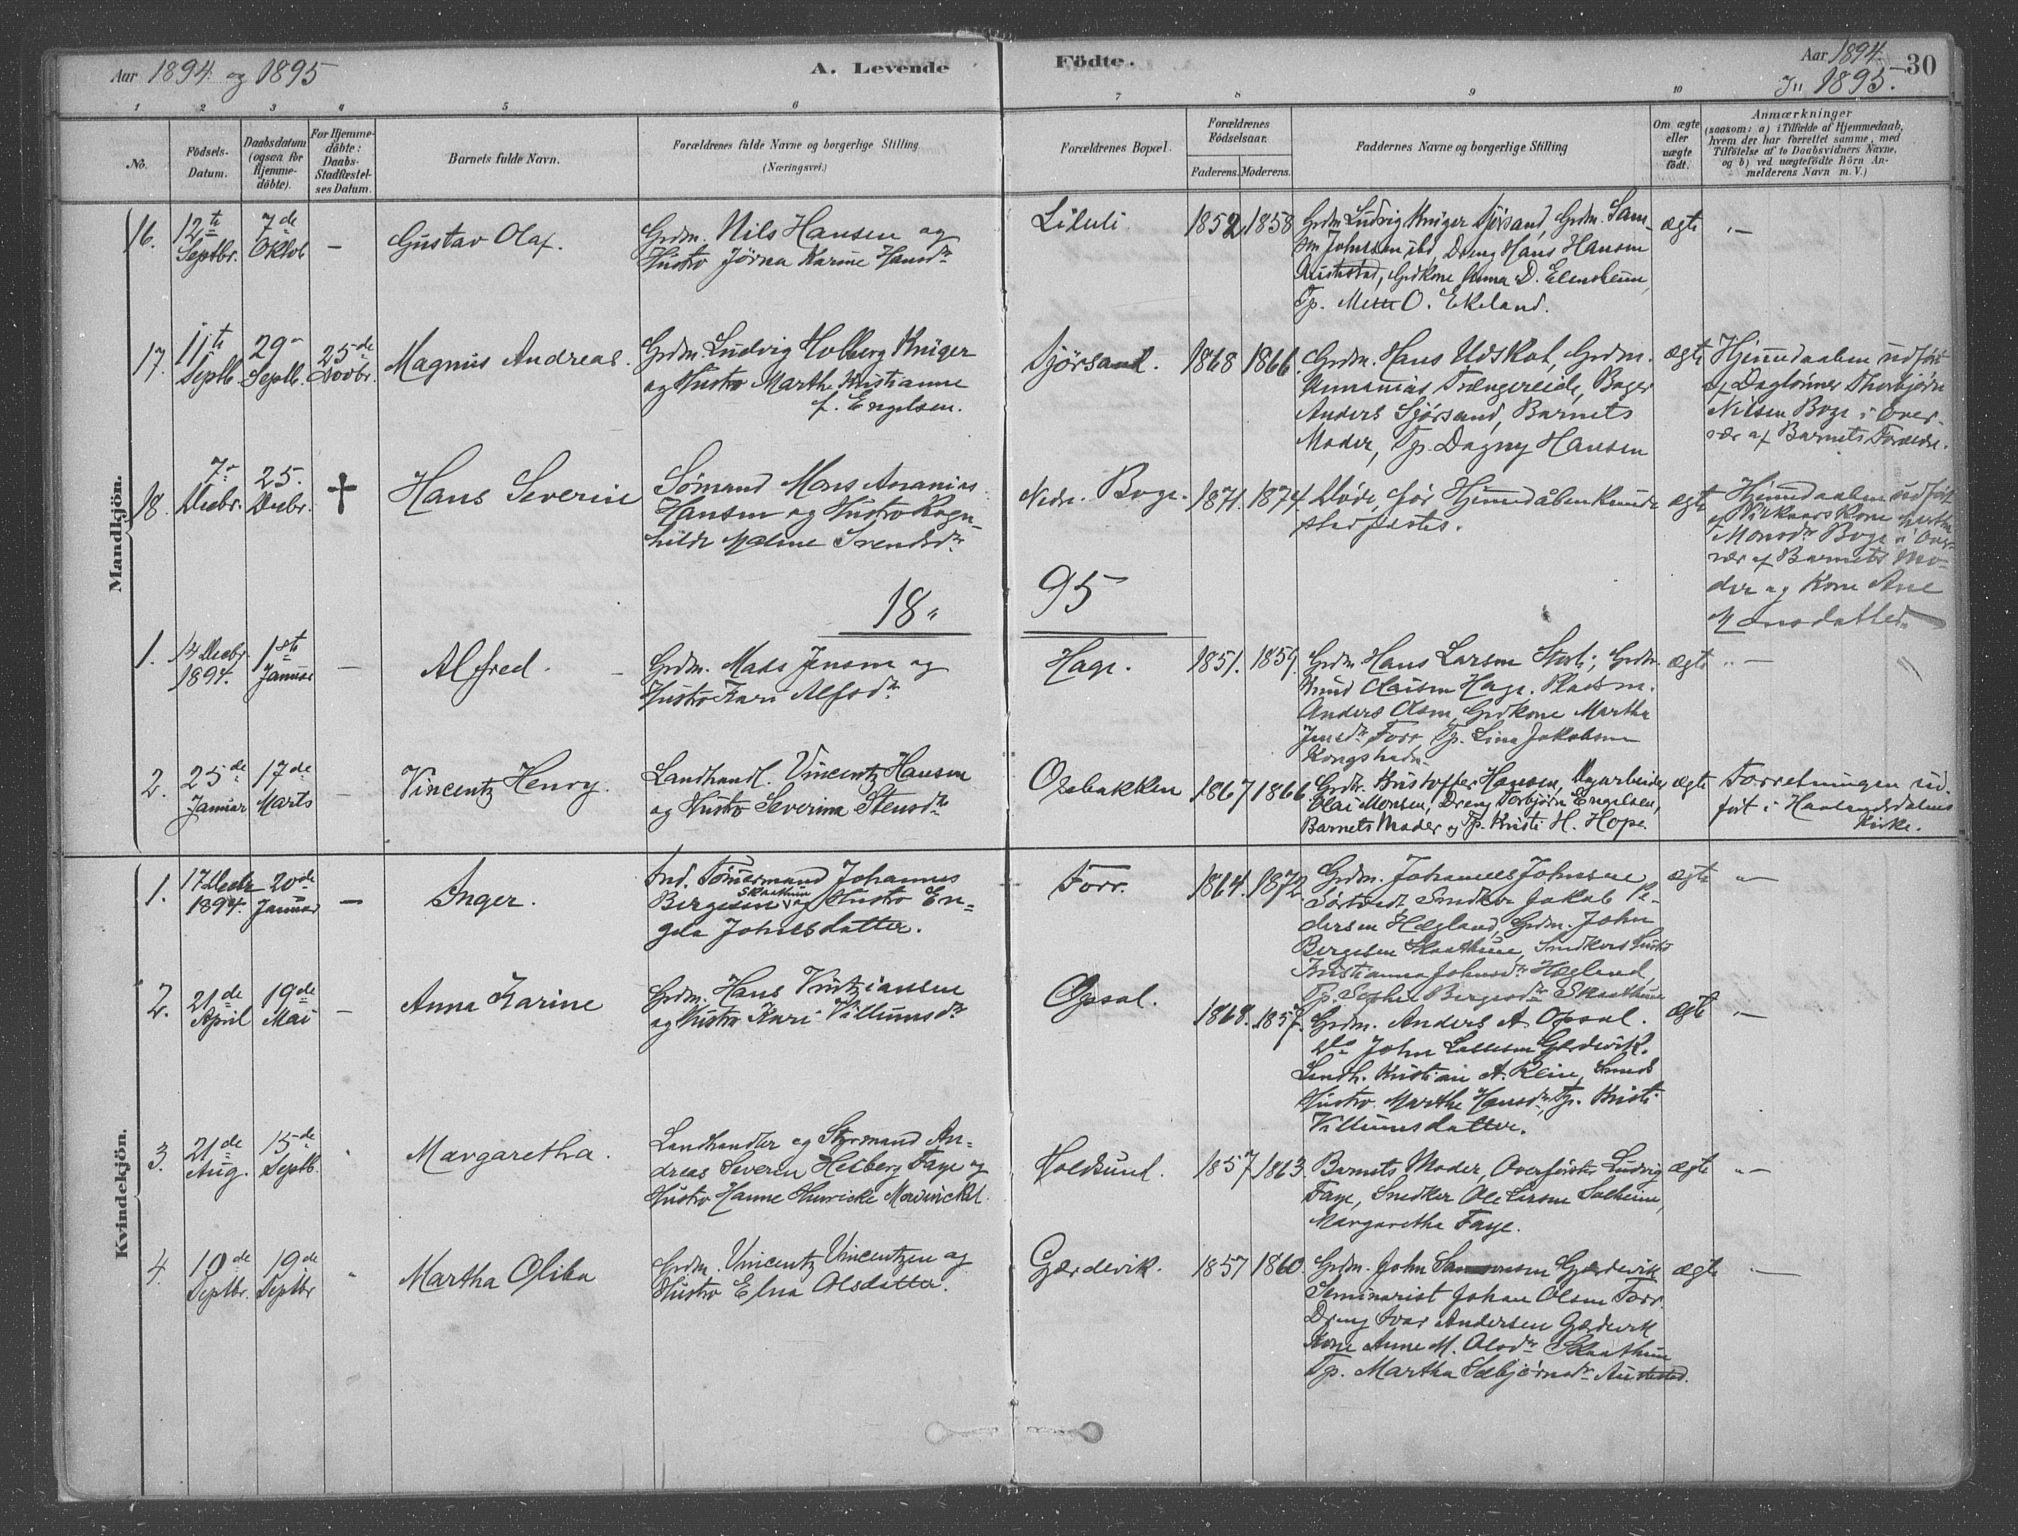 Aar 1894 og 1895
A. Levende
Födte.
Aar 1894
30
1895.
1 2 3 4 5 6 7 8 9 10
No.
Födsels-
Datum.
Daabsdatum
(ogsaa for
Hjemme-
döbte).
For Hjemme-
döbte:
Daabs-
Stadfæstel-
ses Datum.
Barnets fulde Navn.
Forældrenes fulde Navne og borgerlige Stilling
(Næringsvei.)
Forældrenes Bopæl.
Forældrenes
Födselsaar.
Faderens. Moderens.
Faddernes Navne og borgerlige Stilling
Om ægte
eller
uægte
födt.
Anmærkninger
(saasom: a) i Tilfælde af Hjemmedaab,
hvem der har forrettet samme, med
Tilföielse af to Daabsvidners Navne,
og b) ved uægtefödte Börn An-
melderens Navn m. V.)
Mandkjön.
16.
12te
Septbr.
7de
Oktob
—
Gustav Olaf.
Grdm. Nils Hansen og
Hustro Jørna Karine Hansdr
Liluti.
1852
1858
Grdm Ludvig Krüger Sjørsand, Grdm. Sam-
son Johnsen ibd, Dreng Hans Hansen
Austestad, Grdkone Anna D. Elensheim,
Tp. Mette O. Ekeland.
ægte
"—
17.
11te
Septb.
29
Septb.
25de
Novbr.
Magnus Andreas.
Grdm. Ludvig Holberg Krüger
og Hustro Marthe Kristianne
f. Engelsen.
Sjørsand.
1868
1866
Grdm. Hans Udskot, Grdm.
Annanias Trængereid, Bager
Anders Sjørsand, Barnets
Moder, Tp. Dagny Hansen
ægte
Hjemdaaben udført
af Daglönner Thorbjørn
Nilsen Boge i Over-
vær af Barnets Forældre.
18.
7
Decbr.
25.
Decbr.
†
Hans Severin
Sömand Mons Ananias
Hansen og Hustro Ragn-
hilde Malene Svendsdr
Nedr. Boge.
1871.
1874.
Döde, før Hjemdåben kunde
stadfestes.
ægte
Hjemdaaben udført
af Kone
Monsdr Boge i Over-
vær af Barnets Mo-
der og Kone Ane
Monsdatter
18"
95
1.
14 Decbr.
1894.
1ste
Januar
—
Alfred.
Grdm. Mads Jensen og
Hustro Kari Alfsdr
Hage.
1851.
1859.
Grdm Hans Larsen Hage; Grdm.
Knud Olaisen Hage. Pladsm.
Anders Olsen, Grdkone Martha
Jensdr Forr Tp. Lina Jakobsen
Kongshavn.
ægte
"—
2.
25de
Januar
17de
Marts
—
Vincentz Henry.
Landhandl. Vincentz Hansen
og Hustro Severina Stensdr
Opebakken
1867
1866
Grdm. Kristoffer Hansen, Dagarbeider
Olai Monsen, Dreng Torbjörn Engelsen,
Barnets Moder og Tp. Kristi H. Hope
ægte
Forretningen ud-
ført i Haalandsdalens
Kirke.
Kvindekjön.
1.
17 Decbr
1894.
20de
Januar
—
Inger.
Ind. Tömmermand Johannes
Bergesen Skaathun og Hustro En-
gela Johnsdatter.
Forr.
1864.
1872
Grdm. Johannes Johnsen
Sörtveit Snedker Jakob Pe-
dersen Hægland, Grdm. John
Bergesen Skaathun, Snedkers Hustro
Kristianna Johnsdr Hægland,
Tp. Sophie Bergesdr Skaathun
ægte
"—
2.
21de
April
19de
Mai
—
Anna Karine
Grdm. Hans Kristiansen
og Hustro Kari Villumsdr
Opsal.
1868.
1857.
Grdm. Anders A Opsal.
do John Larsen Gjærdevik.
Landh. Kristian A. Rein, Smeds
Hustro Marthe Hansdr, Tp. Kristi
Villumsdatter.
ægte
"—
3.
21de
Aug.
15de
Septb.
Margaretha.
Landhandler og Styrmand An-
dreas Severin Heiberg Faye og
Hustro Hanne Henricke Mowinckel.
Holdsund.
1857
1863
Barnets Moder, Overførster Ludvig
Faye, Snedker Ole Larsen Solheim,
Margaretha Faye.
ægte
"—
4.
10de
Septbr.
19de
Septbr
"
Martha Oliba
Grdm. Vincentz Vincentzen og
Hustro Elna Olsdatter.
Gjærdevik.
1857
1860
Grdm. John Samsonsen Gjærdevik
Seminarist Johan Olsen Forr.
Dreng Ivar Andersen Gjærdevik
Kone Anne M. Olsdr Skaathun
Tp. Martha Sæbjørnsdr Austestad.
ægte
"—